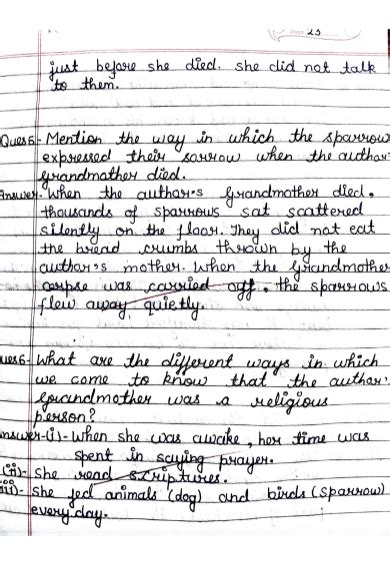 Page 23
just before she died. she did not talk
to them.
Ques5- Mention the way in which the sparrow
expressed their sorrow when the author
Grandmother died.
Answer- When the author's Grandmother died.
thousands of sparrows sat scattered
silently on the floor. They did not eat
the bread crumbs thrown by the
author's mother. When the Grandmother
corpse was carried off. the sparrows
flew away quietly.
ues6- What are the different ways in which
we come to know that the author'
Grandmother was a religious
person?
nswer-(i)- When she was awake, her time was
spent in saying prayer.
(ii)- She read scriptures.
iii)- She fed animals (dog) and birds (sparrow)
everyday.